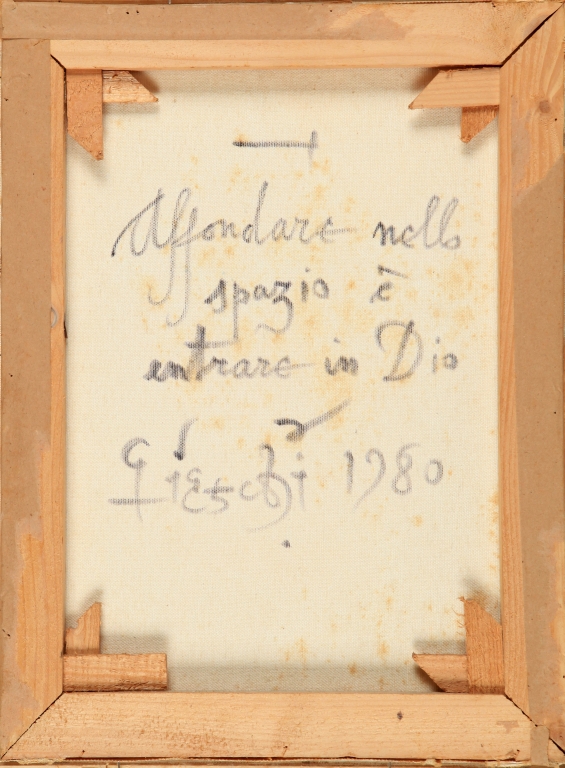 Affondare nello
spazio è
entrare in Dio
1980